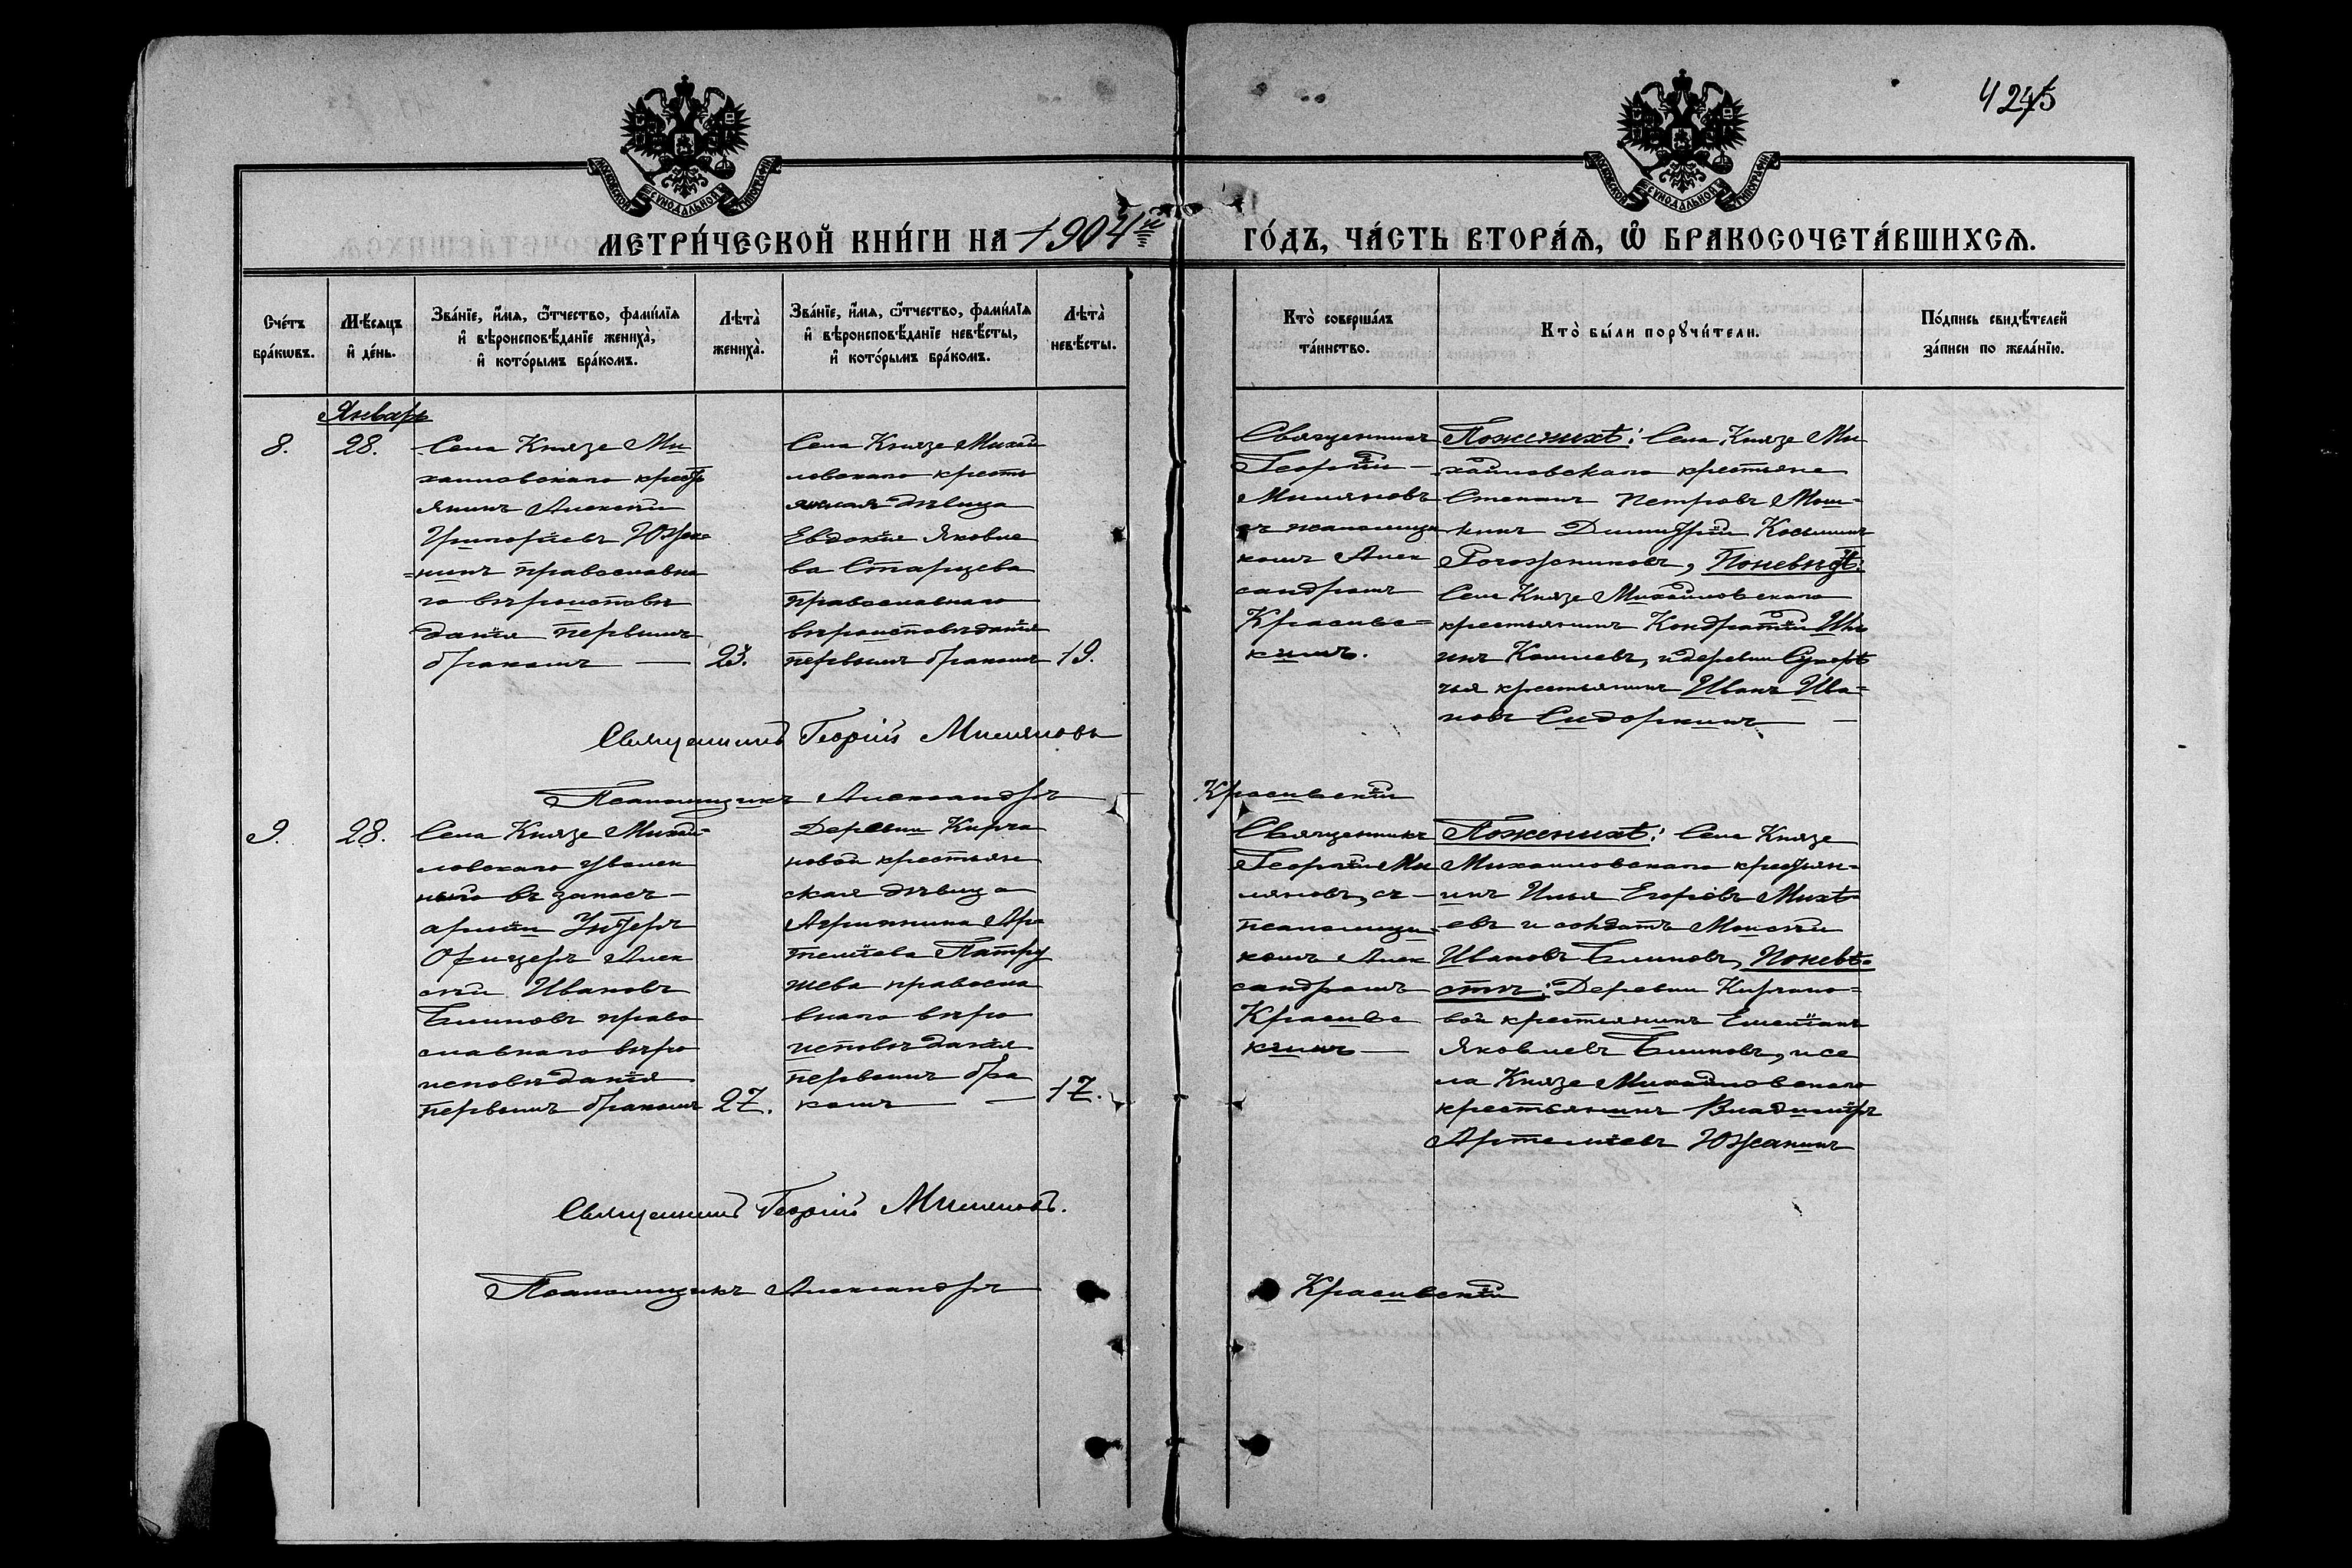 4245
МОСКОВСКОЙ СУНОДАЛЬНОЙ ТИПОГРАФІИ
МОСКОВСКОЙ СУНОДАЛЬНОЙ ТИПОГРАФІИ
МЕТРИ́ЧЕСКОЙ КНИ́ГИ НА 1904й
ГО́ДЪ, ЧА́СТЬ ВТОРА́Ѧ, Ѽ БРАКОСОЧЕТА́ВШИХСѦ.
Сче́тъ
бра́кѡвъ.
Мѣ́сѧцъ
и҆ де́нь.
Зва́нїе, и҆́мѧ, ѻ҆́тчество, фами́лїѧ
и҆ вѣроисповѣ́данїе жениха̀,
и҆ кото́рымъ бра́комъ.
Лѣта̀
жениха̀.
Зва́нїе, и҆́мѧ, ѻ҆́тчество, фами́лїѧ
и҆ вѣроисповѣ́данїе невѣ́сты,
и҆ кото́рымъ бра́комъ.
Лѣта̀
невѣ́сты.
Кто̀ соверша́лъ
та́инство.
Кто̀ бы́ли порꙋчи́тели.
По́дпись свидѣ́телей
за́писи по жела́нїю.
Январь
8.
28.
Села Князе Ми
хаиловскаго крест
янинъ Алексѣй
Григорiевъ Южа
=нинъ православна
го вѣроисповѣ
данiя первымъ
бракомъ —
23.
Села Князе Михай
ловскаго кресть
янская дѣвица
Евдокiя Яковле
ва Старцева
православнаго
вѣроисповѣданiя
первымъ бракомъ
19.
Священникъ
Георгiй —
Миляновъ
съ псаломщи
комъ Алек
сандромъ
Красивс=
кимъ.
Поженихѣ: Села Князе Ми
хайловскаго крестьяне
Степанъ Петровъ Мош=
кинъ Димитрiй Косьминъ
Рогожниковъ, Поневѣстѣ:
Села Князе Михайловскаго
крестьянинъ Кондратiй Иль
инъ Кошлевъ, и деревни Сухорѣ
чья крестьянинъ Иванъ Ива=
новъ Сидоркинъ —
Священникъ Георгiй Миляновъ
Псаломщикъ Александръ Красивскiй
9.
28.
Села Князе Михай=
ловскаго уволен
ный въ запасъ —
армiи Унтеръ
Офицеръ Алек
сѣй Ивановъ
Блиновъ право
славнаго вѣро
исповѣданiя
первымъ бракомъ
27.
Деревни Кирпа
новой крестьян
ская дѣвица
Агриппина Ар
темiева Патру
шева правосла
внаго вѣро
исповѣданiя
первымъ бра
комъ —
17.
Священникъ
Георгiй Ми
ляновъ, съ —
псаломщи
комъ Алек
сандромъ
Красивс
кимъ —
Поженихѣ: Села Князе
Михаиловскаго крестьян=
инъ Илья Егоровъ Михѣ=
евъ и солдатъ Моисей
Ивановъ Блиновъ, Поневѣ=
стѣ: Деревни Кирпано=
вой крестьянинъ Емелiанъ
Яковлевъ Блиновъ, и се
ла Князе Михайловскаго
крестьянинъ Владимiръ
Артемiевъ Южанинъ
Священникъ Георгiй Миляновъ.
Псаломщикъ Александръ Красивскiй